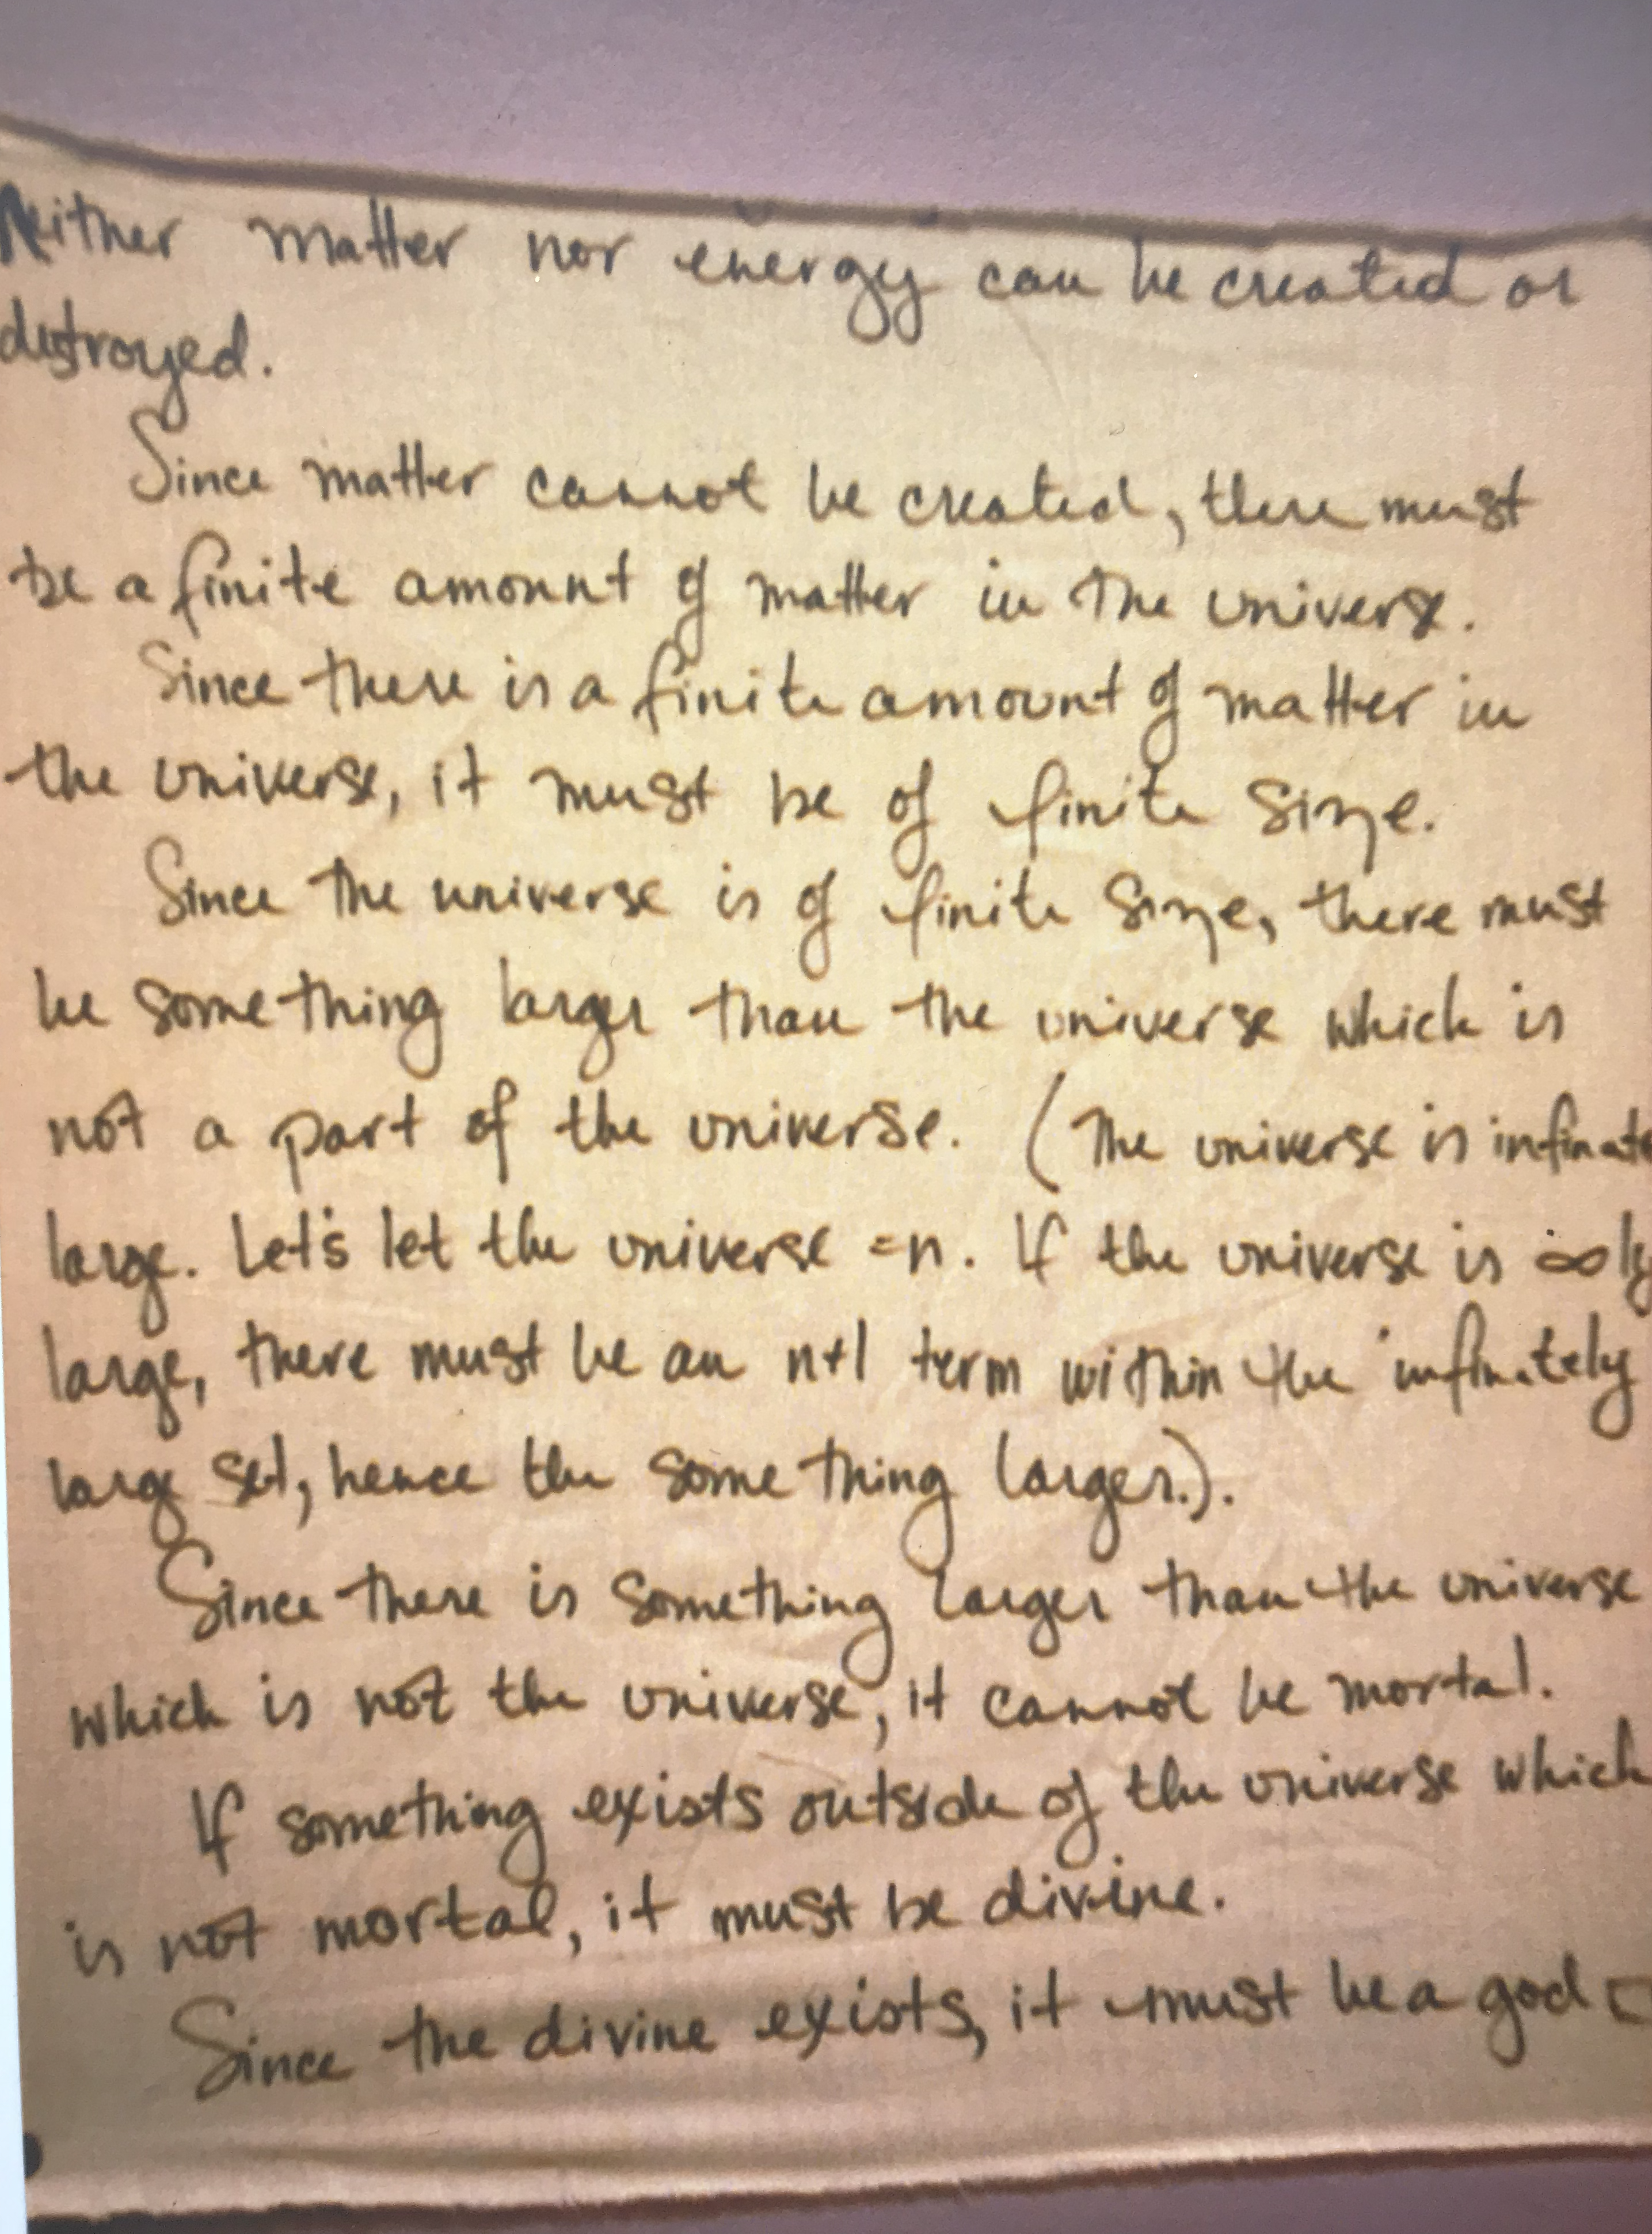 Neither matter nor energy can be created or
destroyed.
Since matter cannot be created, there must
be a finite amount of matter in the universe.
Since there is a finite amount of matter in
the universe, it must be of finite size.
Since the universe is of finite size, there must
be something larger than the universe which is
not a part of the universe. (The universe is infinate
large. Let's let the universe =n. If the universe is ∞ly
large, there must be an n+1 term within the infinitely
large set, hence the something larger.).
Since there is something larger than the universe
which is not the universe, it cannot be mortal.
If something exists outside of the universe which
is not mortal, it must be divine.
Since the divine exists, it must be a god